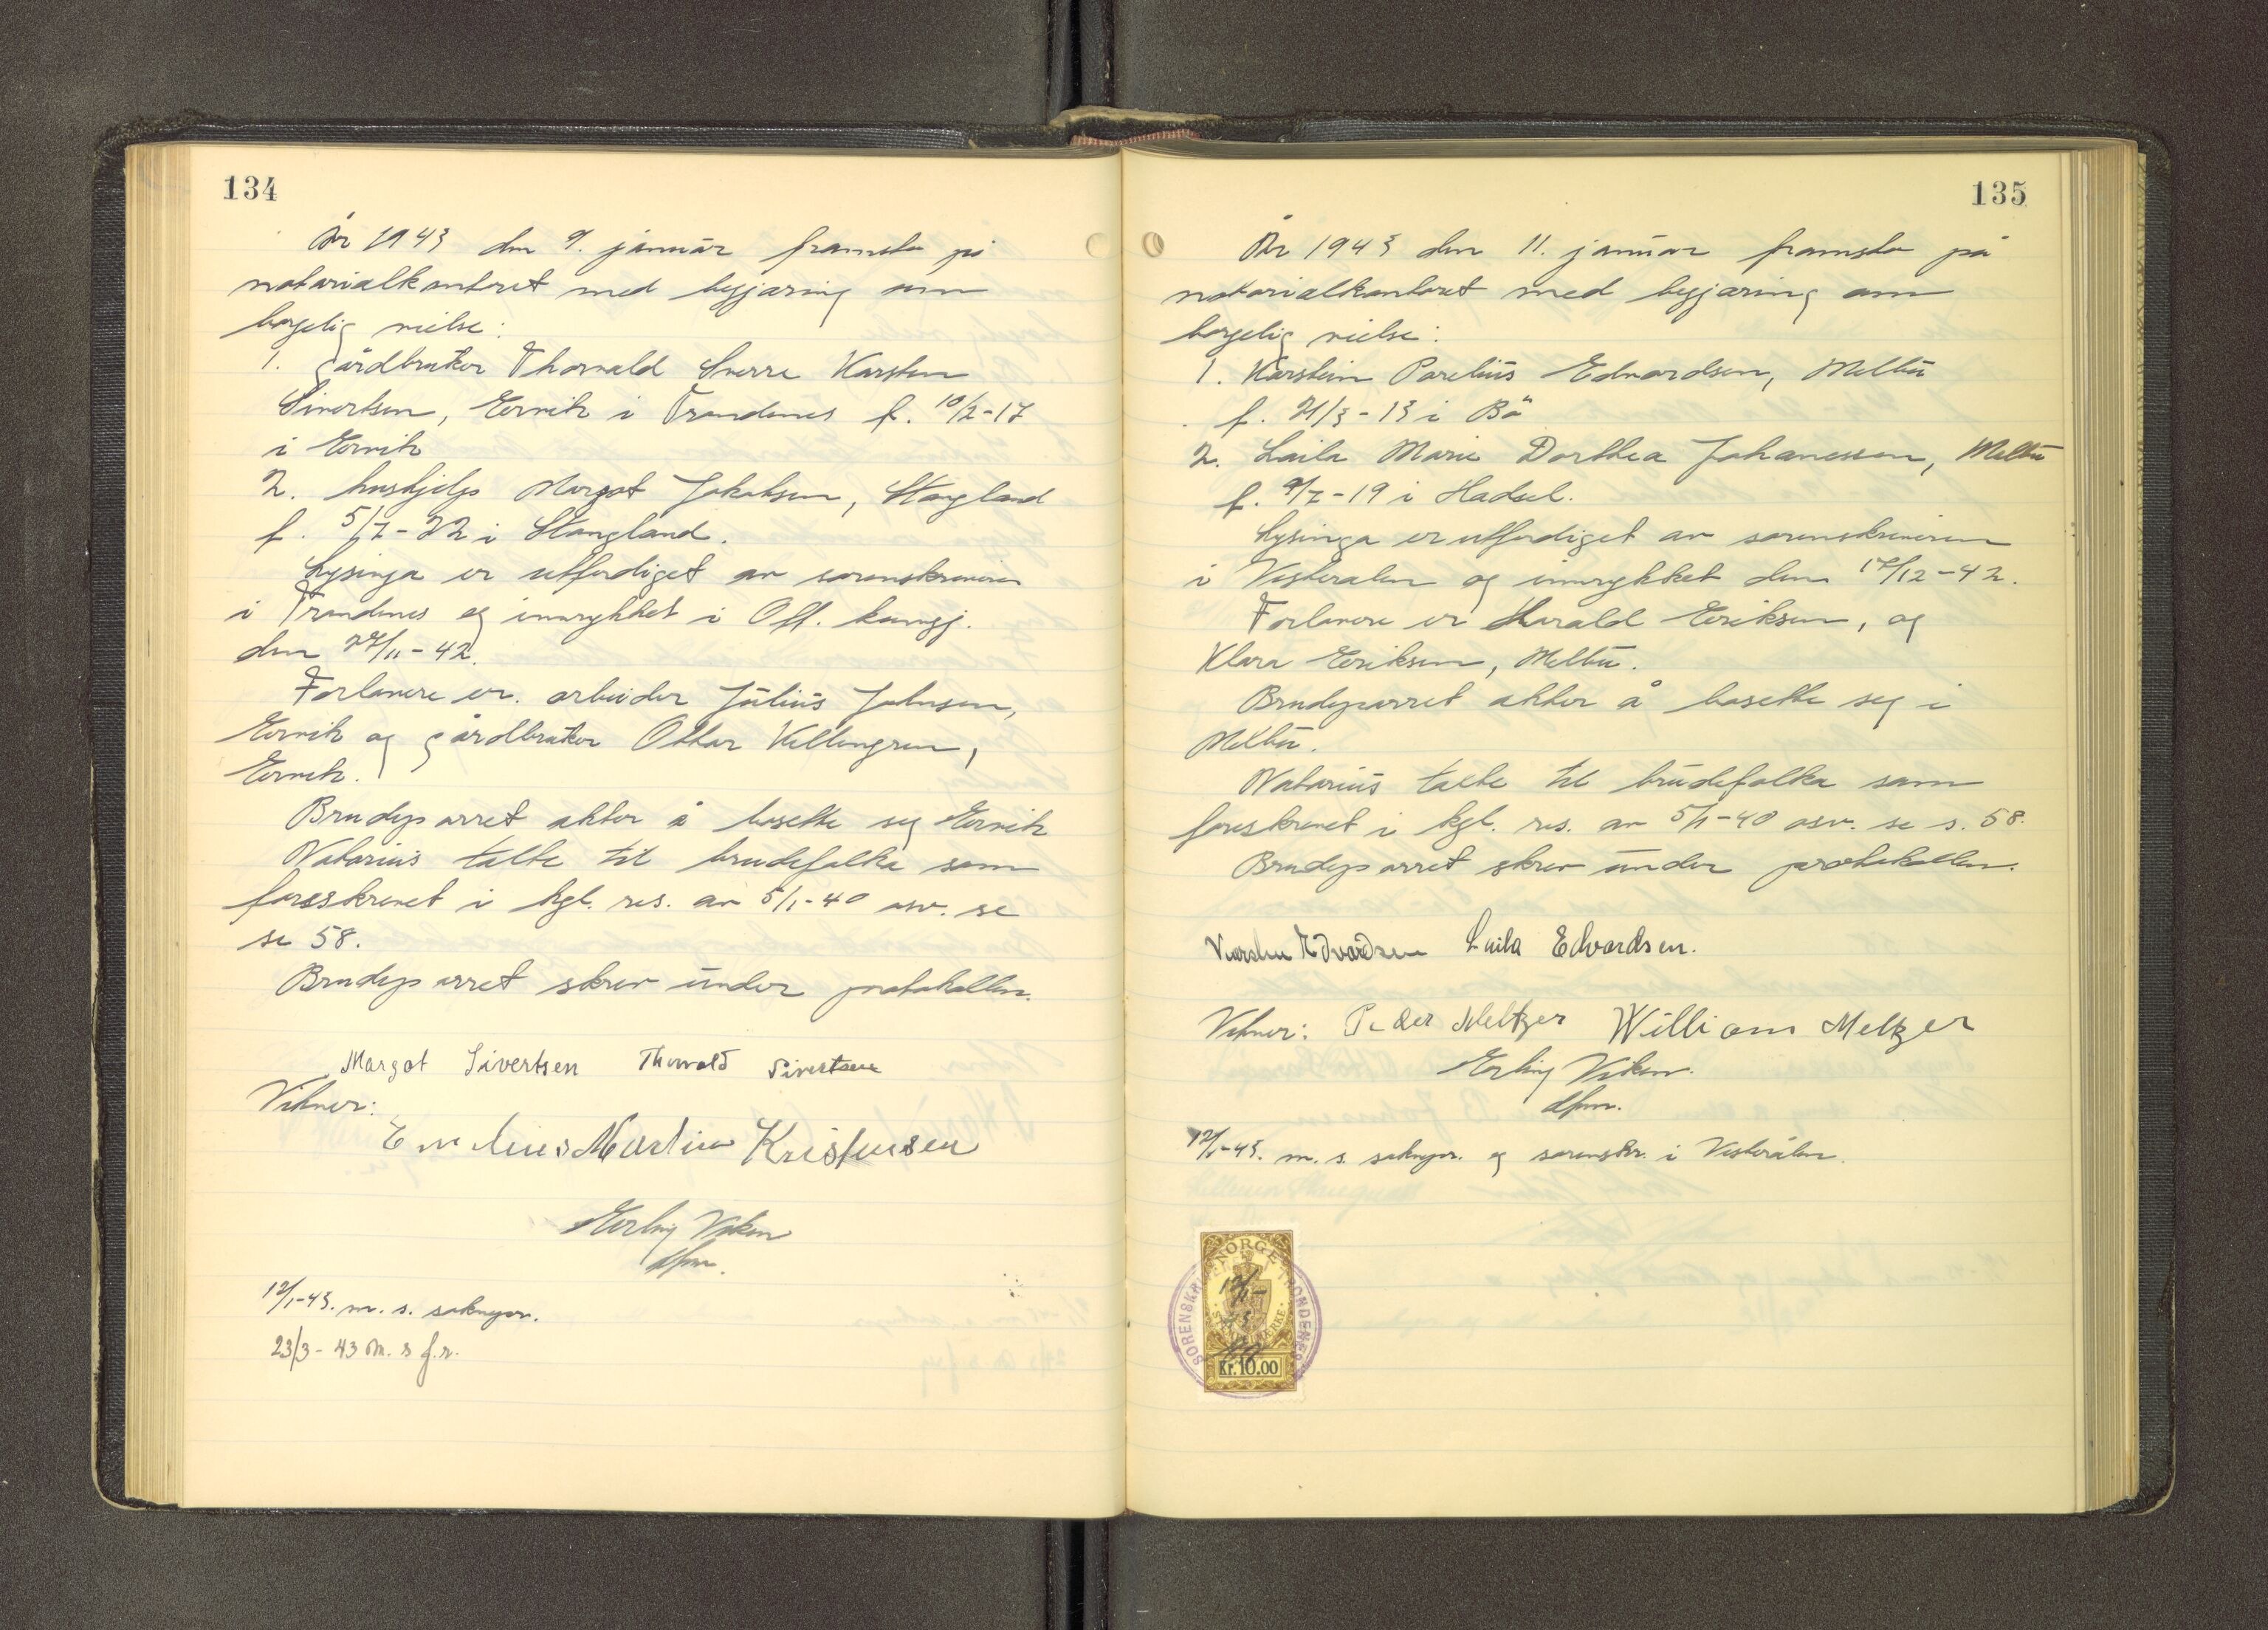 134
År 1943 den 9. januar framsto på
notarialkontoret med begjæring om
borgelig vielse:
1. gårdbruker Thorvald Sverre Karsten
Sivertsen, Ervik i Trondenes f. 10/2-17
i Ervik
2. hushjelp Margot Jakobsen, Stangland
f. 5/7-22 i Stangland.
Lysinga er utferdiget av sorenskriveren
i Trondenes og innrykket i Off. kunngj.
den 27/11-42.
Forlovere er. arbeider Julius Johnsen,
Ervik og gårdbruker Ottar Killengren,
Ervik.
Brudeparret akter å bosette seg Ervik
Notarius talte til brudefolka som
foreskrevet i kgl. res. av 5/1-40 osv. se
se 58.
Brudeparret skrev under protokollen.
Margot Sivertsen Thorvald Sivertsen
Vitner:
Martin Kristensen
Erling Viken
dfm.
12/1-43. m. s. soknepr.
23/3-43 m. s f.r.
135
År 1943 den 11. januar framsto på
notarialkontoret med begjæring om
borgelig vielse:
1. Karstein Parelius Edvardsen, Melbu
f. 21/3-13 i Bö
2. Laila Marie Dorthea Johanessen, Melbu
f. 9/7-19 i Hadsel.
Lysinga er utferdiget av sorenskriveren
i Vesterålen og innrykket den 17/12-42.
Forlovere er Harald Eriksen, og
Klara Eriksen, Melbu.
Brudeparret akter å bosette seg i
Melbu.
Notarius talte til brudefolka som
foreskrevet i kgl. res. av 5/1-40 osv. se s. 58.
Brudeparret skrev under protokollen.
Karsten Edvardsen Laila Edvardsen.
Vitner: Peder Meltzer William Meltzer
Erling Viken.
dfm.
12/1-43. m. s. soknepr. og sorenskr. i Vesterålen.
NORGE
SORENSKRI TRONDENES
12/1-
43
Kr.10.00